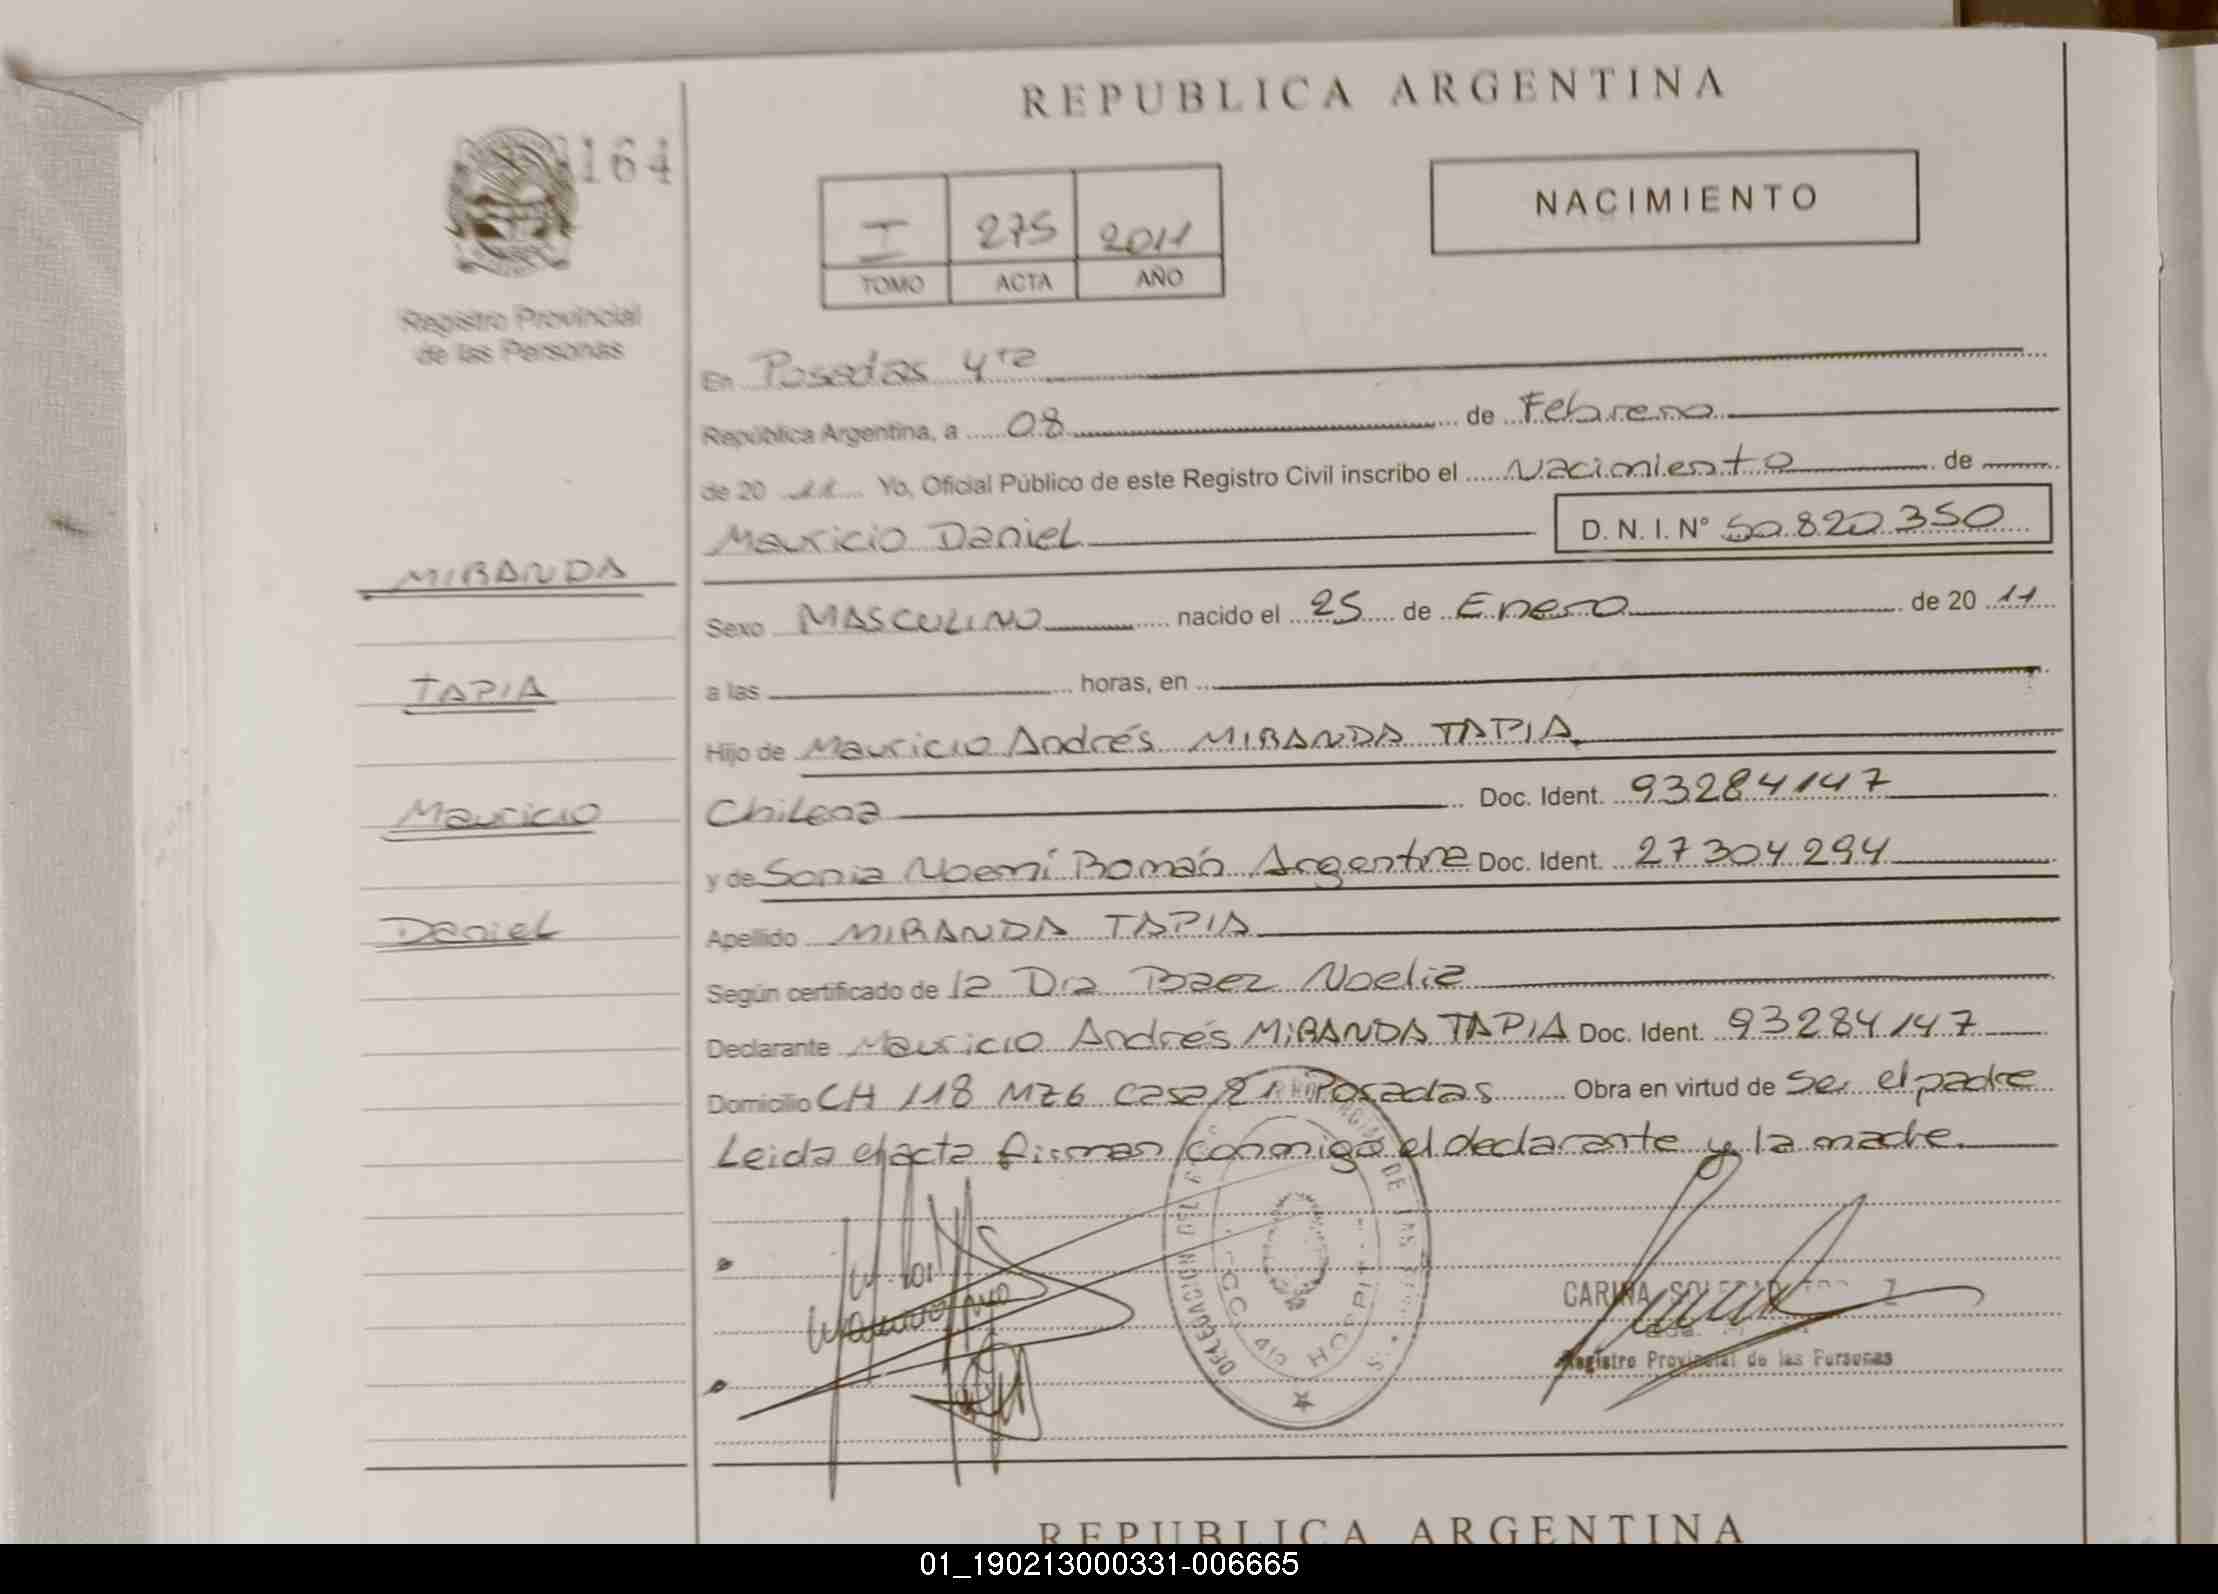 REPUBLICA ARGENTINA
164
NACIMIENTO
I 275 2011
TOMO ACTA AÑO
Registro Provincial
de las Personas
En Posadas 4ta
República Argentina, a 08 de Febrero
de 20 11 Yo, Oficial Público de este Registro Civil inscribo el Nacimiento de
Mauricio Daniel D. N. I. N° 50.820.350
MIRANDA
Sexo MASCULINO nacido el 25 de Enero de 20 11
TAPIA
a las horas, en
Hijo de Mauricio Andrés MIRANDA TAPIA
Mauricio
Chilena Doc. Ident. 93284147
y de Sonia Noemí Román Argentina Doc. Ident. 27304294
Daniel
Apellido MIRANDA TAPIA
Según certificado de la Dra Baez Noelia
Declarante Mauricio Andrés MIRANDA TAPIA Doc. Ident. 93284147
Domicilio CH 118 MZ6 Casa 21 Posadas Obra en virtud de Ser el padre
Leida el acta firman conmigo el declarante y la madre.
DELEGACION
HOSPITAL
CARINA SOLEDAD
Registro Provincial de las Personas
REPUBLICA ARGENTINA
01_190213000331-006665